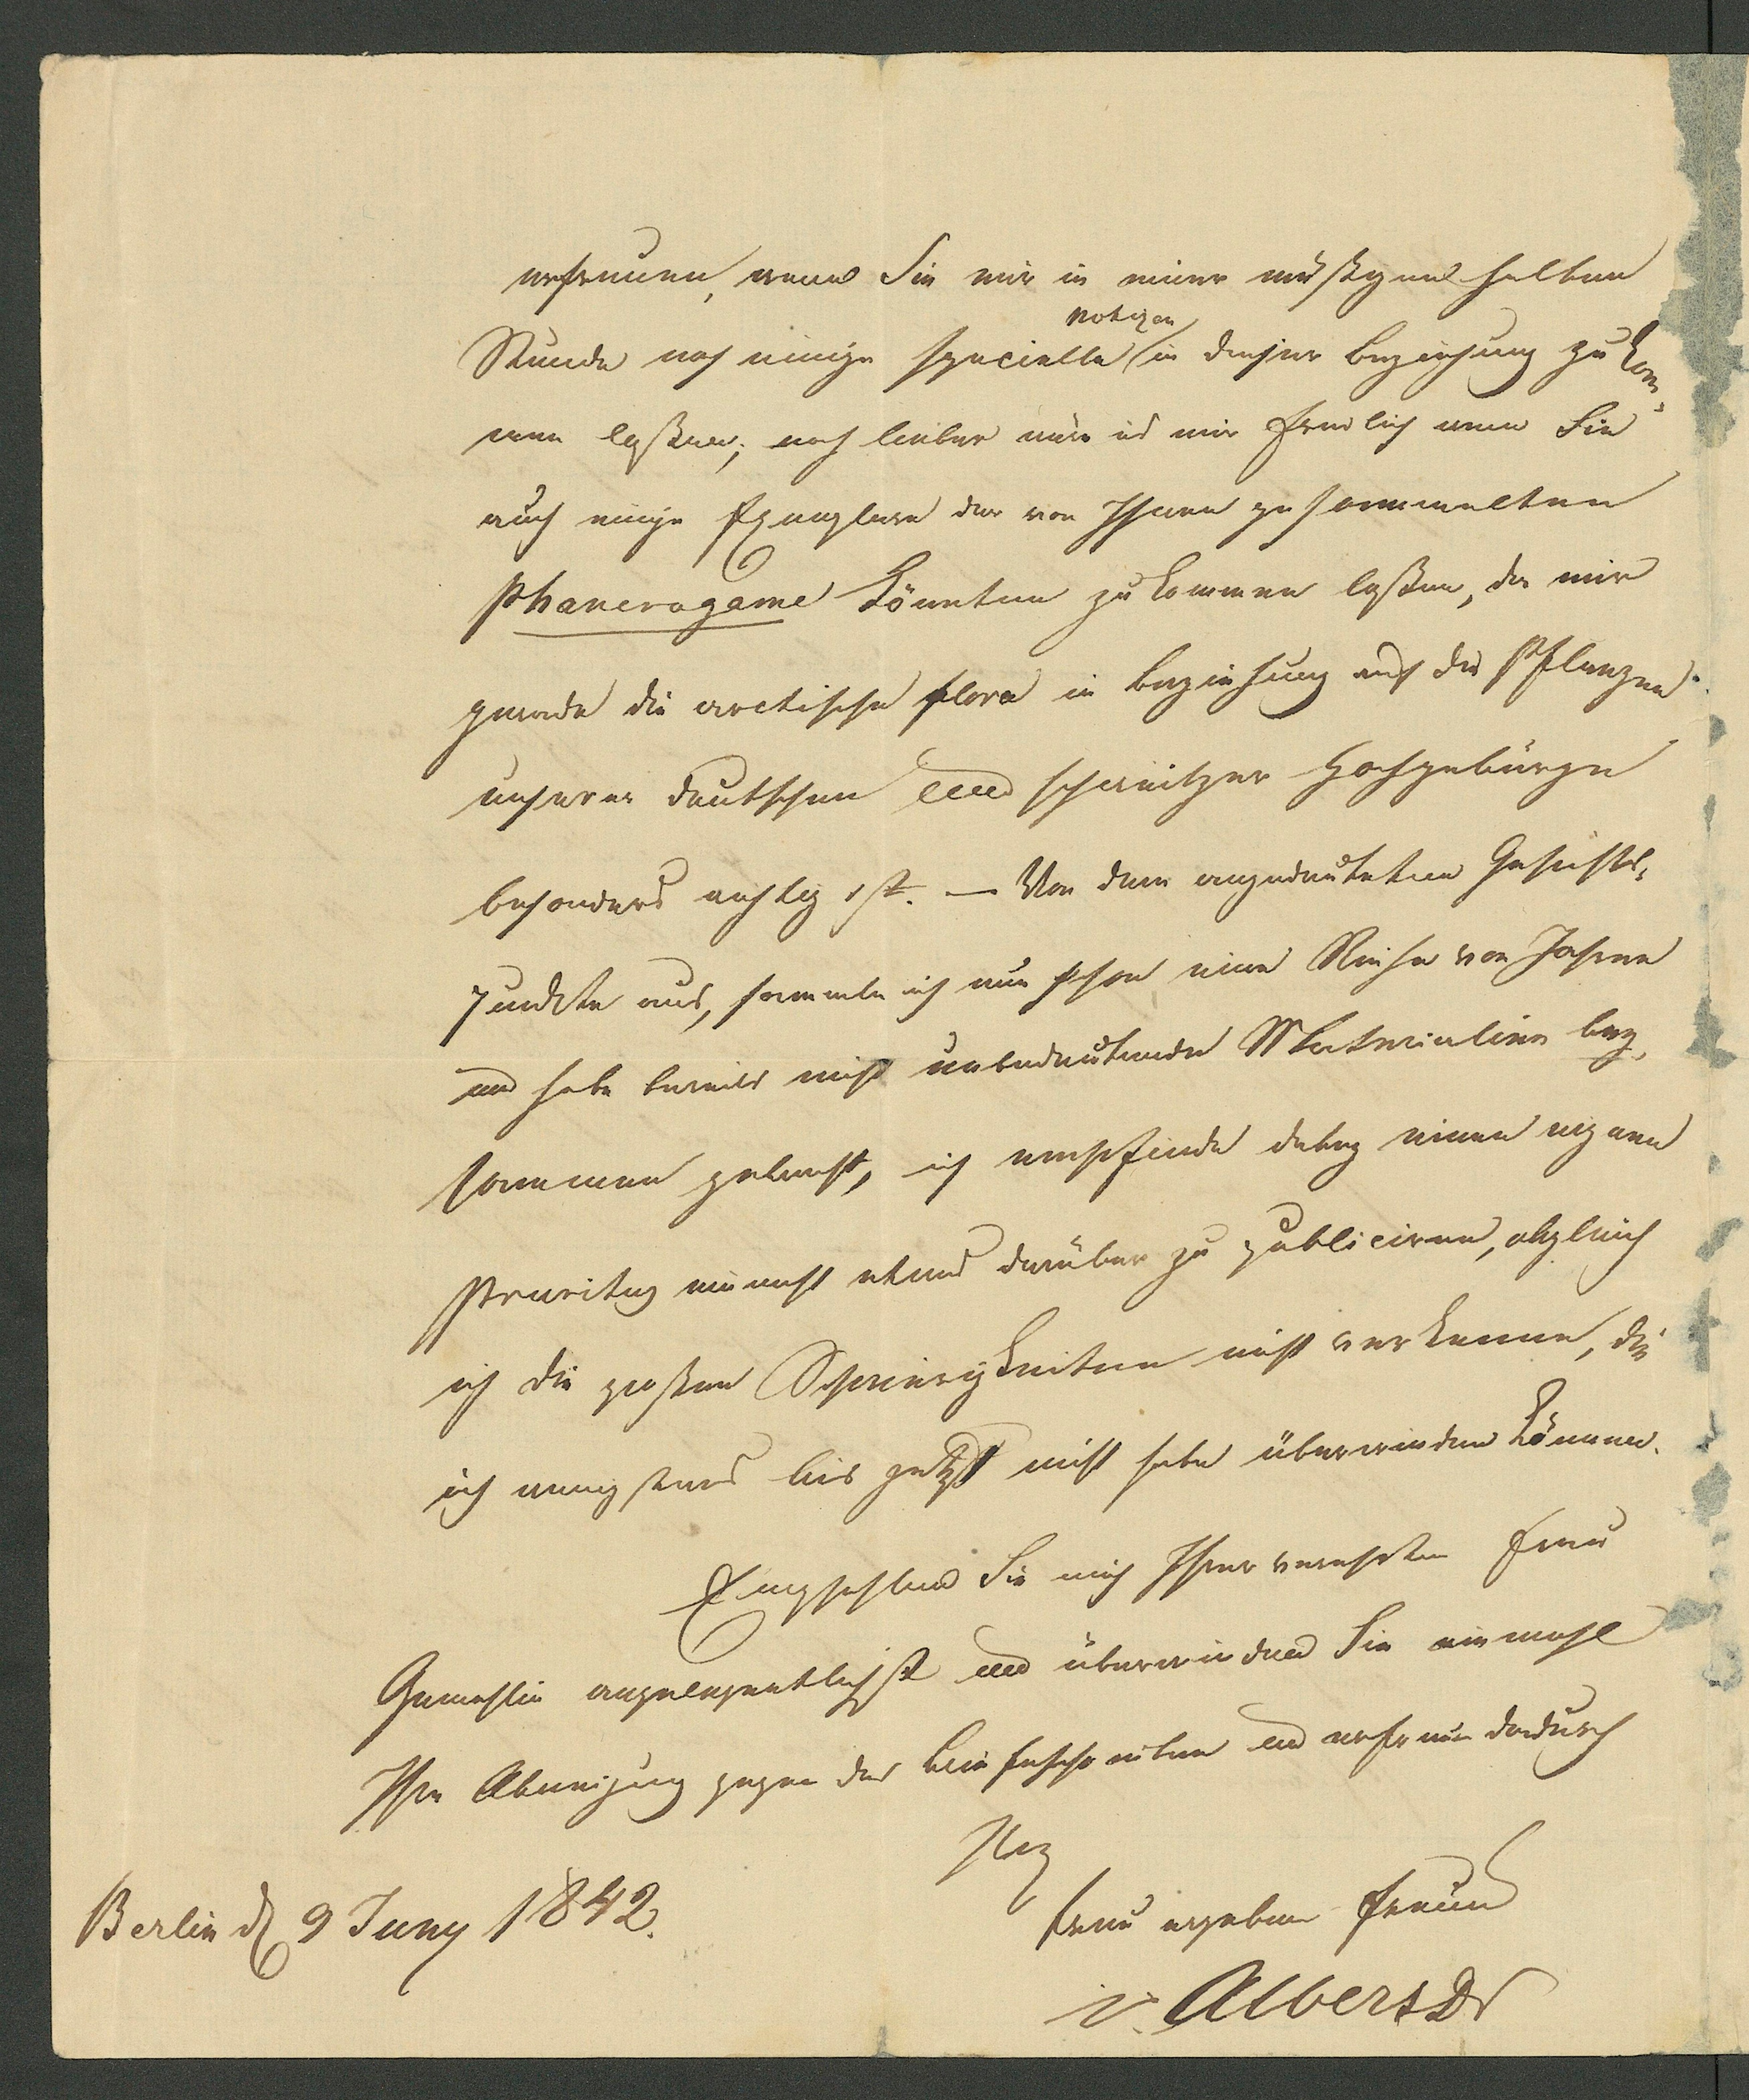 erfreuen, wenn Sie mir in einer müßigen halben
Stunde noch einige specielle Notizen in dieser Beziehung zukom-
men laßen; noch lieber wäre es mir freilich wenn Sie
auch einige Exemplare der von Ihnen gesammelten
Phanerogame könnten zukommen laßen, da mir
gerade die arctische Flora in Beziehung auf die Pflanzen
unserer deutschen und schweitzer Hochgebürge
besonders wichtig ist. — Von dem angedeuteten Gesichts-
punckte aus, sammle ich nun schon eine Reihe von Jahren
und habe bereits nicht unbedeutende Materialien bey-
sammen gebracht, ich empfinde dabey einen eignen
Pruritus einmahl etwas darüber zu publiciren, obgleich
ich die großen Schwierigkeiten nicht verkenne, die
ich wenigstens bis jetzt nicht habe überwinden können.
Empfehlen Sie mich Ihrer verehrten Frau
Gemahlin angelegentlichst und überwinden Sie einmahl
Ihre Abneigung gegen das Briefschreiben und erfreun dadurch
Ihren
treu ergebenen Freund
Berlin d 9 Juny 1842.
v. Albers Dr